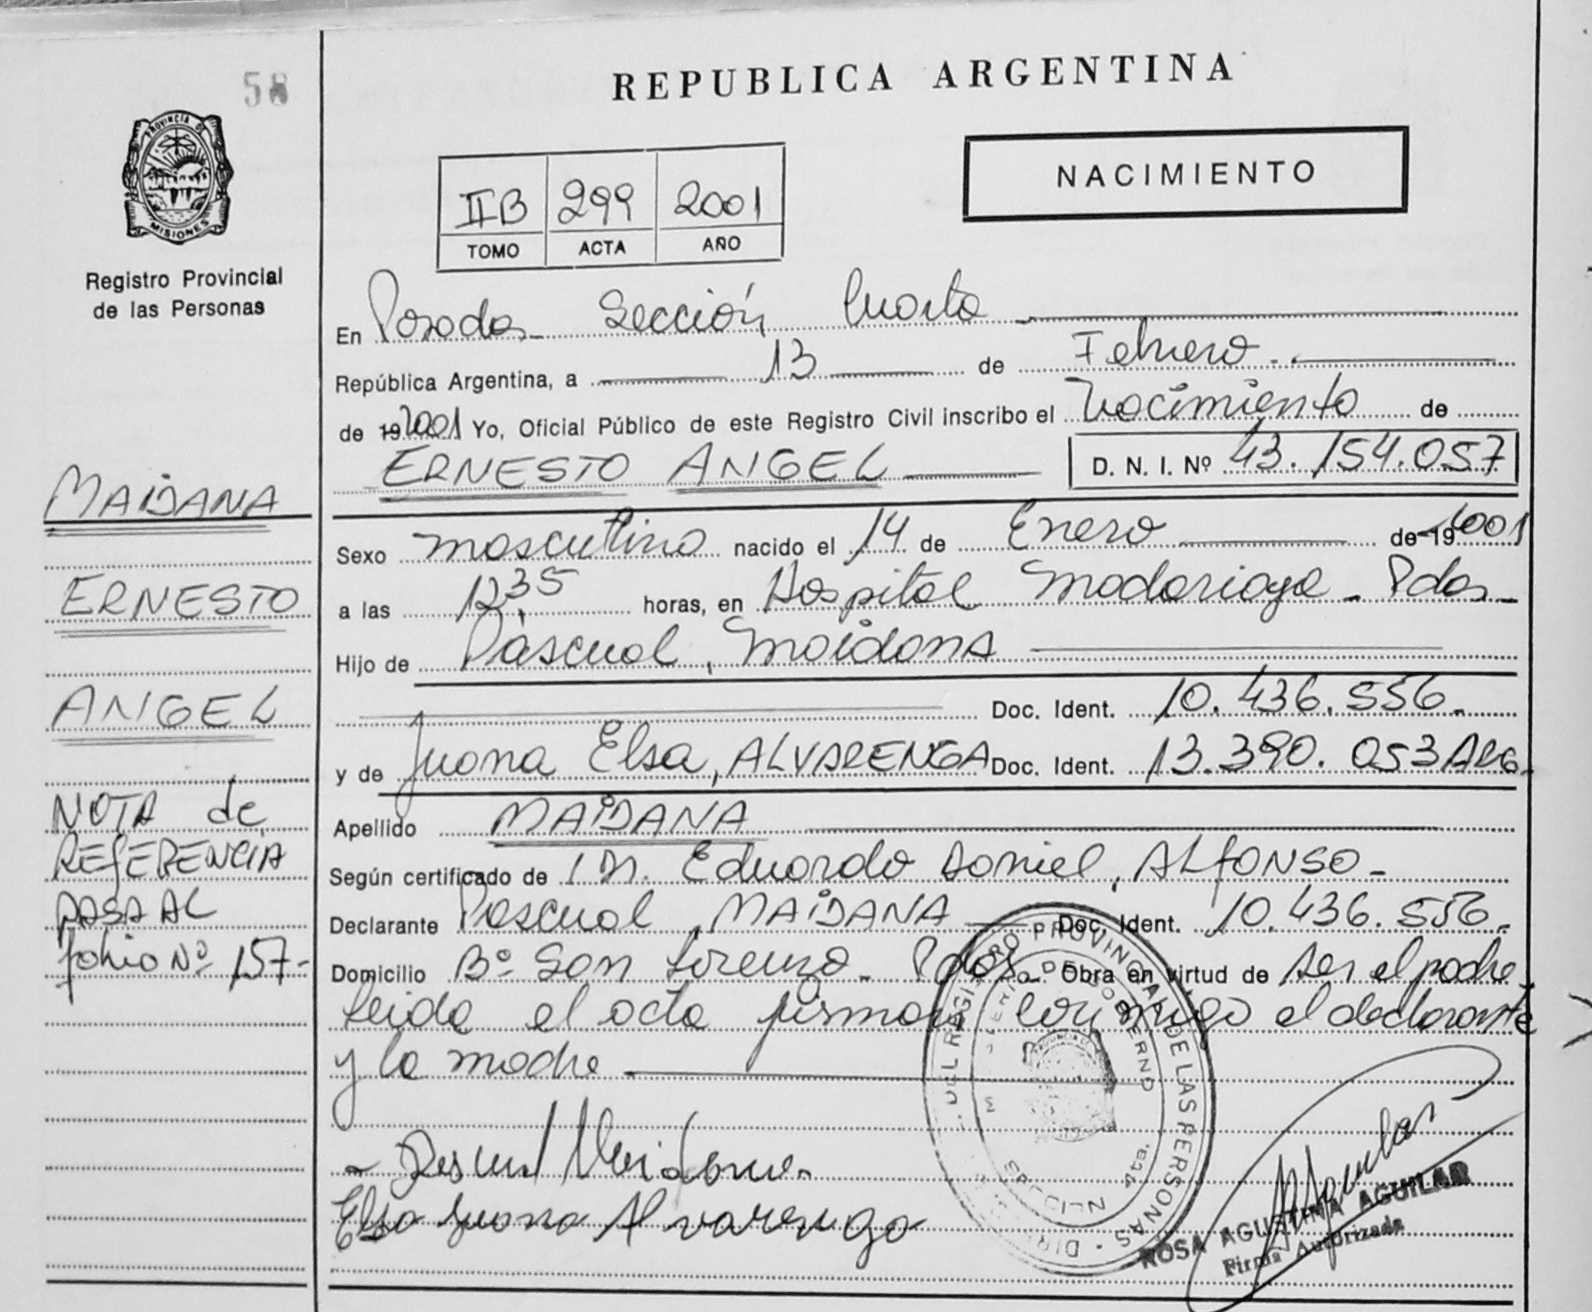 58
REPUBLICA ARGENTINA
PROVINCIA DE
MISIONES
Registro Provincial
de las Personas
IIB 299 2001
TOMO ACTA AÑO
NACIMIENTO
En Posadas Sección Cuarta
República Argentina, a 13 de Febrero
de 19 2001 Yo, Oficial Público de este Registro Civil inscribo el Nacimiento de
ERNESTO ANGEL D. N. I. Nº 43.154.057
MAIDANA
Sexo masculino nacido el 14 de Enero de 19 2001
ERNESTO
a las 12,35 horas, en Hospital Madariaga - Pdas -
Hijo de Pascual, Maidana
ANGEL
Doc. Ident. 10.436.556.
y de Juana Elsa, ALVARENGA Doc. Ident. 13.390.053 ARG.
NOTA de
REFERENCIA
PASA AL
folio Nº 157-
Apellido MAIDANA
Según certificado de Dr. Eduardo Daniel, ALFONSO -
Declarante Pascual, MAIDANA Doc. Ident. 10.436.556.
Domicilio Bº San Lorenzo - Pdas - Obra en virtud de ser el padre
Leida el acta firman conmigo el declarante
y la madre
Pascual Maidana
Elsa Juana Alvarenga
DEL REGISTRO PROVINCIAL DE LAS PERSONAS
DE GOBIERNO
SECCION 4ta.
R Aguilar
ROSA AGUSTINA AGUILAR
Firma Autorizada